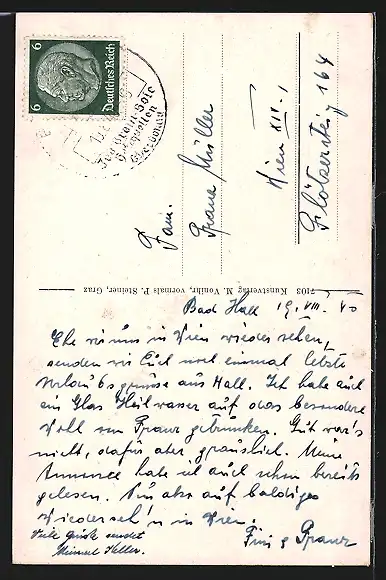 6
6
Deutsches Reich
Fam.
Franz Müller
Wien XIV. 1
Flötzersteig 164
7103 Kunstverlag M. Vonihr, vormals P. Steiner, Graz
Bad Hall 19. VIII. 40
Ehe wir uns in Wien wieder sehen,
senden wir Euch noch einmal letzte
Urlaubsgrüsse aus Hall. Ich habe auch
ein Glas Heilwasser auf das besondere
Woll von Franz getrunken. Gut war's
nicht, dafür aber grauslich. Meine
Annonce habe ich auch schon bereits
gelesen. Nun also auf baldiges
Wiederseh'n in Wien.
Fini & Franz
Viele Grüße sendet
Heller.